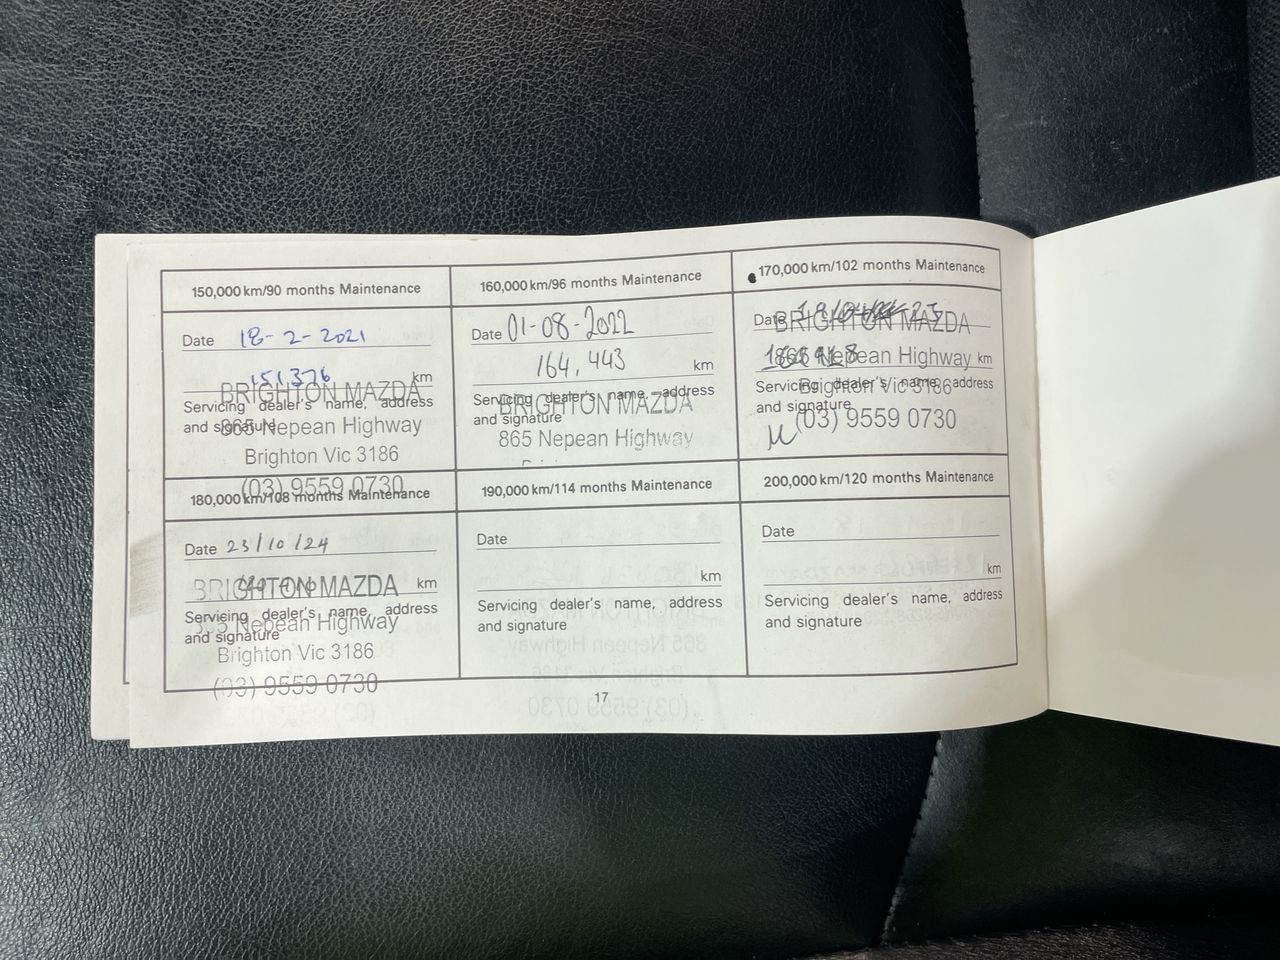 150,000 km/90 months Maintenance
Date 18-2-2021
151376 km
Servicing dealer's name, address
and signature
BRIGHTON MAZDA
865 Nepean Highway
Brighton Vic 3186
(03) 9559 0730
160,000 km/96 months Maintenance
Date 01-08-2022
164,443 km
Servicing dealer's name, address
and signature
BRIGHTON MAZDA
865 Nepean Highway
170,000 km/102 months Maintenance
Date
km
Servicing dealer's name, address
and signature
BRIGHTON MAZDA
865 Nepean Highway
Brighton Vic 3186
(03) 9559 0730
180,000 km/108 months Maintenance
Date 23/10/24
km
Servicing dealer's name, address
and signature
BRIGHTON MAZDA
Nepean Highway
Brighton Vic 3186
(03) 9559 0730
190,000 km/114 months Maintenance
Date
km
Servicing dealer's name, address
and signature
200,000 km/120 months Maintenance
Date
km
Servicing dealer's name, address
and signature
17